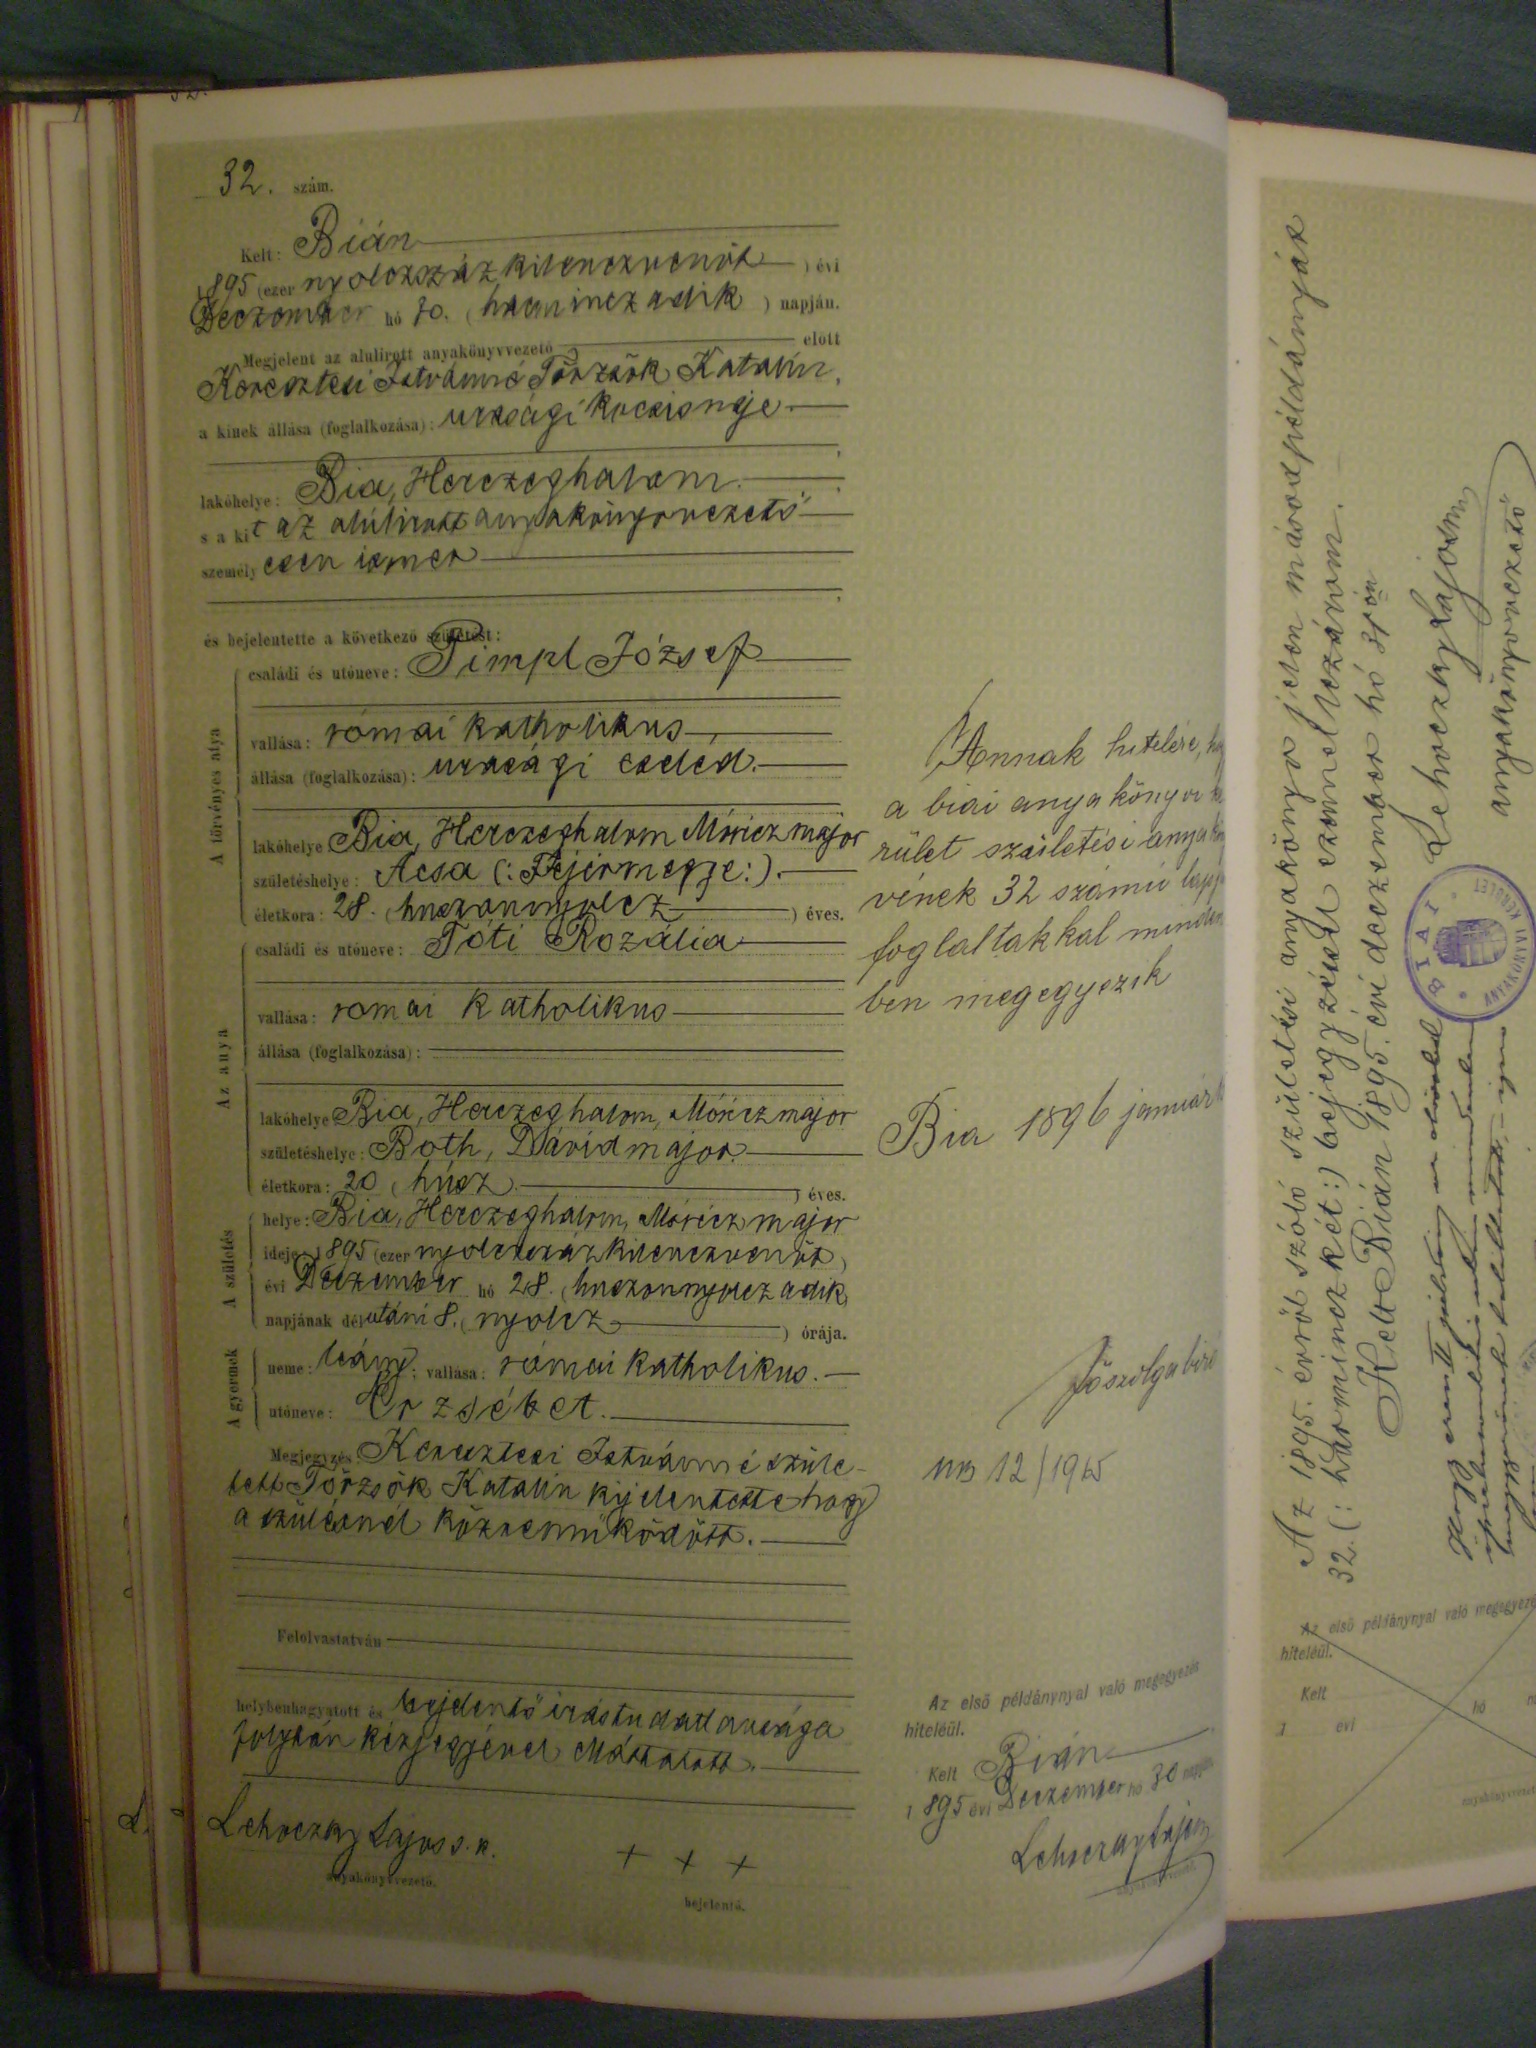 32. szám.
Kelt: Bián
1895 (ezer nyolczszáz kilenczvenöt ) évi
Deczember hó 30. (harminczadik ) napján.
Megjelent az alulirott anyakönyvvezető előtt
Keresztesi Istvánné Törzsök Katalin,
a kinek állása (foglalkozása): urasági kocsisneje.
lakóhelye: Bia, Herczeghalom.
s a kit az alúlirott anyakönyvvezető
személyesen ismer
és bejelentette a következő születést:
A törvényes atya
családi és utóneve: Pimpl József
vallása: római katholikus
állása (foglalkozása): urasági cseléd.
lakóhelye: Bia, Herczeghalom Móricz major
születéshelye: Acsa (: Fejérmegye :).
életkora: 28. (huszonnyolcz ) éves.
Az anya
családi és utóneve: Tóti Rozália
vallása: romai katholikus
állása (foglalkozása):
lakóhelye Bia, Herczeghalom, Móricz major
születéshelye: Both, Dávidmajor.
életkora: 20 (húsz ) éves.
A születés
helye: Bia, Herczeghalom, Móricz major
ideje: 1895 (ezer nyolczszáz kilenczvenöt )
évi Deczember hó 28. (huszonnyolcz adik
napjának délutáni 8. (nyolcz ) órája.
A gyermek
neme: leány; vallása: római katholikus.
utóneve: Erzsébet.
Megjegyzés: Keresztesi Istvánné szüle-
tett Törzsök Katalin kijelentette hogy
a szülésnél közreműködött.
Felolvastatván
helybenhagyatott és bejelentő irástudatlansága
folytán kézjegyével elláttatott.
Lehoczky Lajos s. k.
anyakönyvvezető.
+ + +
bejelentő.
Annak hitelére,
a biai anyakönyvi
rület születési anya
vének 32 számú
foglaltakkal minden
ben megegyezik
Bia 1896 január
főszolgabiró
12/1965
Az első példánynyal való megegyezés
hiteléül.
Kelt Bián
1895 évi Deczember hó 30 napján
Lehoczky Lajos
anyakönyvvezető.
Az 1895. évről szóló születési anyakönyv jelen másodpéldányát
32. (: harminczkét :) bejegyzéssel ezennel lezárom.
Kelt Bián 1895. évi deczember hó 31én
Lehoczky Lajos
anyakönyvvezető
BIAI
ANYAKÖNYVI KERÜLET
Az első példánynyal való megegyezé
hiteléül.
Kelt
1 évi hó